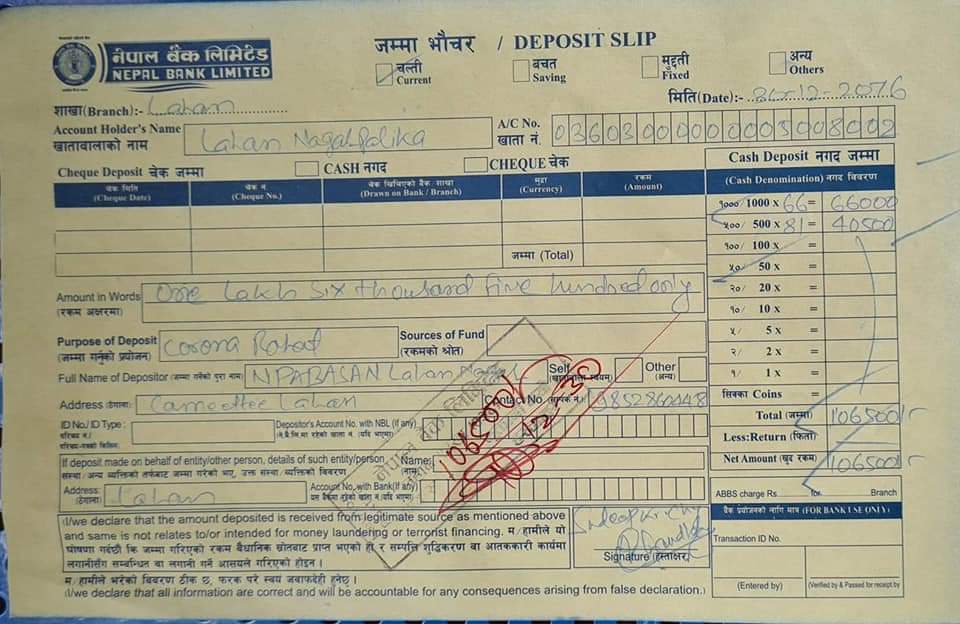 नेपाल बैंक लिमिटेड
NEPAL BANK LIMITED
जम्मा भौचर / DEPOSIT SLIP
चल्ती Current
बचत Saving
मुद्दती Fixed
अन्य Others
मिति(Date):- 30-12-2076
शाखा(Branch):- Lahan
Account Holder's Name Lahan Nagarpalika
खातावालाको नाम
A/C No. 03603000000003008002
खाता नं.
Cheque Deposit चेक जम्मा
CASH नगद
CHEQUE चेक
चेक मिति (Cheque Date)
चेक नं (Cheque No.)
चेक खिचिएको बैंक शाखा (Drawn on Bank / Branch)
मुद्रा (Currency)
रकम (Amount)
जम्मा (Total)
Cash Deposit नगद जम्मा
(Cash Denomination) नगद विवरण
१०००/ 1000 x 66 = 66000
५००/ 500 x 81 = 40500
१००/ 100 x =
५०/ 50 x =
२०/ 20 x =
१०/ 10 x =
५/ 5 x =
२/ 2 x =
१/ 1 x =
सिक्का Coins
Total (जम्मा) 106500/-
Less:Return (फिर्ता)
Net Amount (खुद रकम) 106500/-
ABBS charge Rs. for Branch
बैंक प्रयोजनको लागि मात्र (FOR BANK USE ONLY)
Transaction ID No.
(Entered by)
(Verified & Passed for receipt by
Amount in Words One Lakh Six thousand five hundred only
(रकम अक्षरमा)
Purpose of Deposit Corona Rahat
(जम्मा गर्नुको प्रयोजन)
Sources of Fund
(रकमको श्रोत)
Full Name of Depositor (जम्मा गर्नेको पुरा नाम) NPABASAN Lahan
Self
Other (अन्य)
Address (ठेगाना) Lahan
Contact No.
ID No./ID Type :
परिचय नं./
Depositor's Account No. with NBL (if any)
106500/-
If deposit made on behalf of entity/other person, details of such entity/person
संस्था/अन्य व्यक्तिको तर्फबाट जम्मा गरेको भए, उक्त संस्था, व्यक्तिको विवरण
Name:
(नाम)
Address: Lahan
(ठेगाना)
Account No. with Bank(if any)
I/we declare that the amount deposited is received from legitimate source as mentioned above
and same is not relates to/or intended for money laundering or terrorist financing. म/हामीले यो
घोषणा गर्दछौं कि जम्मा गरिएको रकम बैधानिक स्रोतबाट प्राप्त भएको हो र सम्पत्ति शुद्धिकरण वा आतंककारी कार्यमा
लगानीसँग सम्बन्धित वा लगानी गर्ने आसयले गरिएको होइन ।
Signature (हस्ताक्षर)
म/हामीले भरेको विवरण ठीक छ, फरक परे स्वयं जवाफदेही हुनेछु ।
I/we declare that all information are correct and will be accountable for any consequences arising from false declaration.